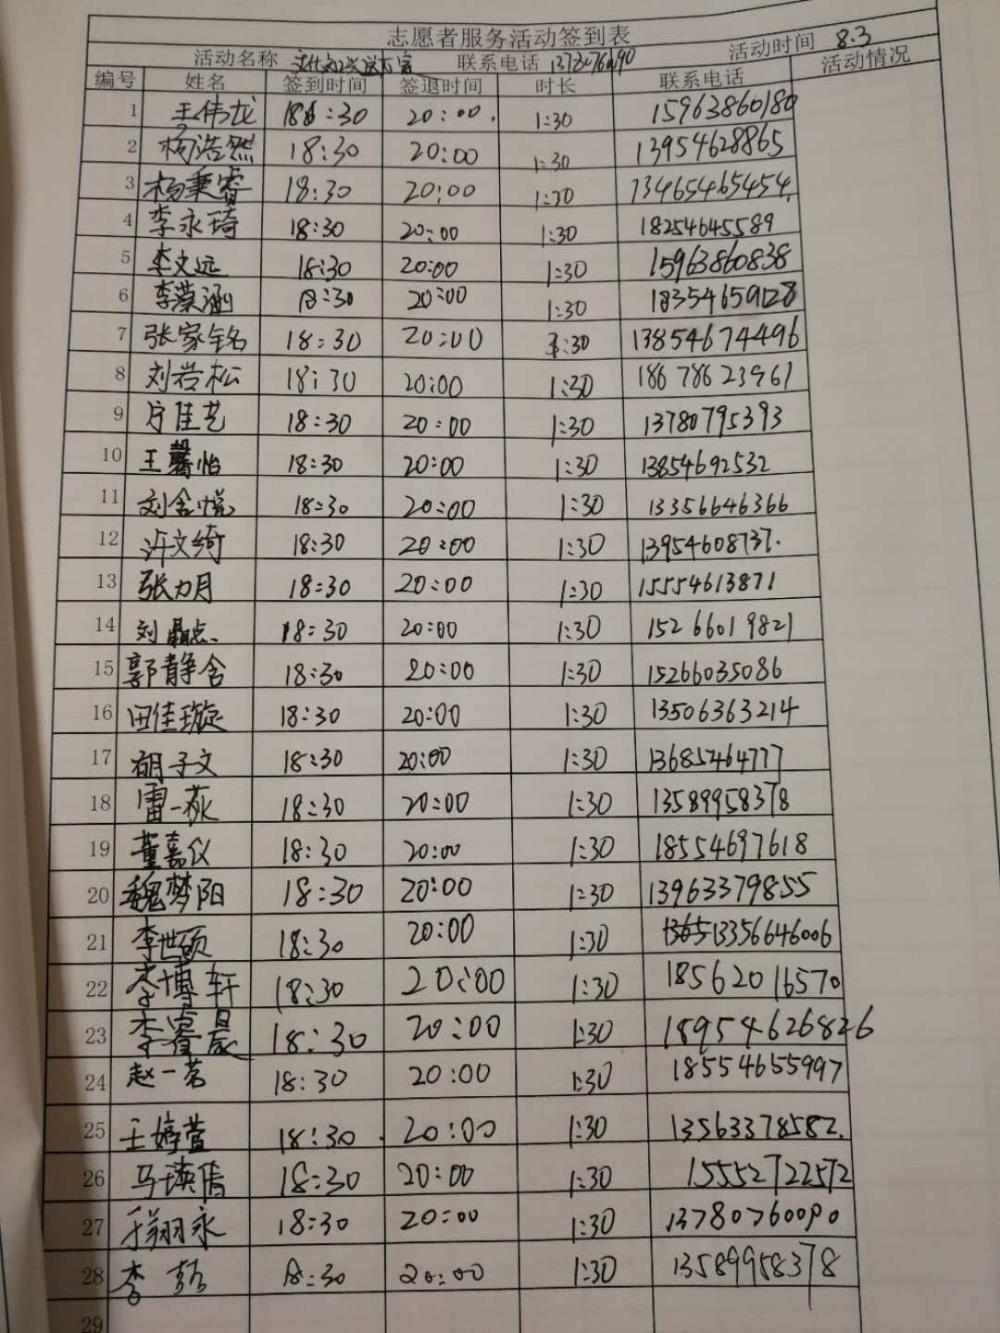 志愿者服务活动签到表
活动名称 联系电话 活动时间 8.3
编号 姓名 签到时间 签退时间 时长 联系电话 活动情况
1 王伟龙 18:30 20:00. 1:30 15963860180
2 杨浩然 18:30 20:00 1:30 13954628865
3 杨秉睿 18:30 20:00 1:30 13465465454.
4 李永琦 18:30 20:00 1:30 18254645589
5 李文远 18:30 20:00 1:30 15963860838
6 李蕴涵 18:30 20:00 1:30 18354659128
7 张家铭 18:30 20:00 1:30 13854674496
8 刘若松 18:30 20:00 1:30 18678623961
9 佳艺 18:30 20:00 1:30 13780795393
10 王馨怡 18:30 20:00 1:30 13854692532
11 刘含悦 18:30 20:00 1:30 13356646366
12 许文绮 18:30 20:00 1:30 13954608737.
13 张力月 18:30 20:00 1:30 15554613871
14 刘 18:30 20:00 1:30 15266019821
15 郭静含 18:30 20:00 1:30 15266035086
16 田佳璇 18:30 20:00 1:30 13506363214
17 胡子文 18:30 20:00 1:30 13685464777
18 雷一荻 18:30 20:00 1:30 13589958378
19 董嘉仪 18:30 20:00 1:30 18554697618
20 魏梦阳 18:30 20:00 1:30 13963379855
21 李世硕 18:30 20:00 1:30 13356646006
22 李博轩 18:30 20:00 1:30 18562016570
23 李睿晨 18:30 20:00 1:30 18954626826
24 赵一茗 18:30 20:00 1:30 18554655997
25 王婷萱 18:30 20:00 1:30 13563378582.
26 马瑛倩 18:30 20:00 1:30 15552722572
27 翔永 18:30 20:00 1:30 13780760090
28 李 18:30 20:00 1:30 13589958378
29